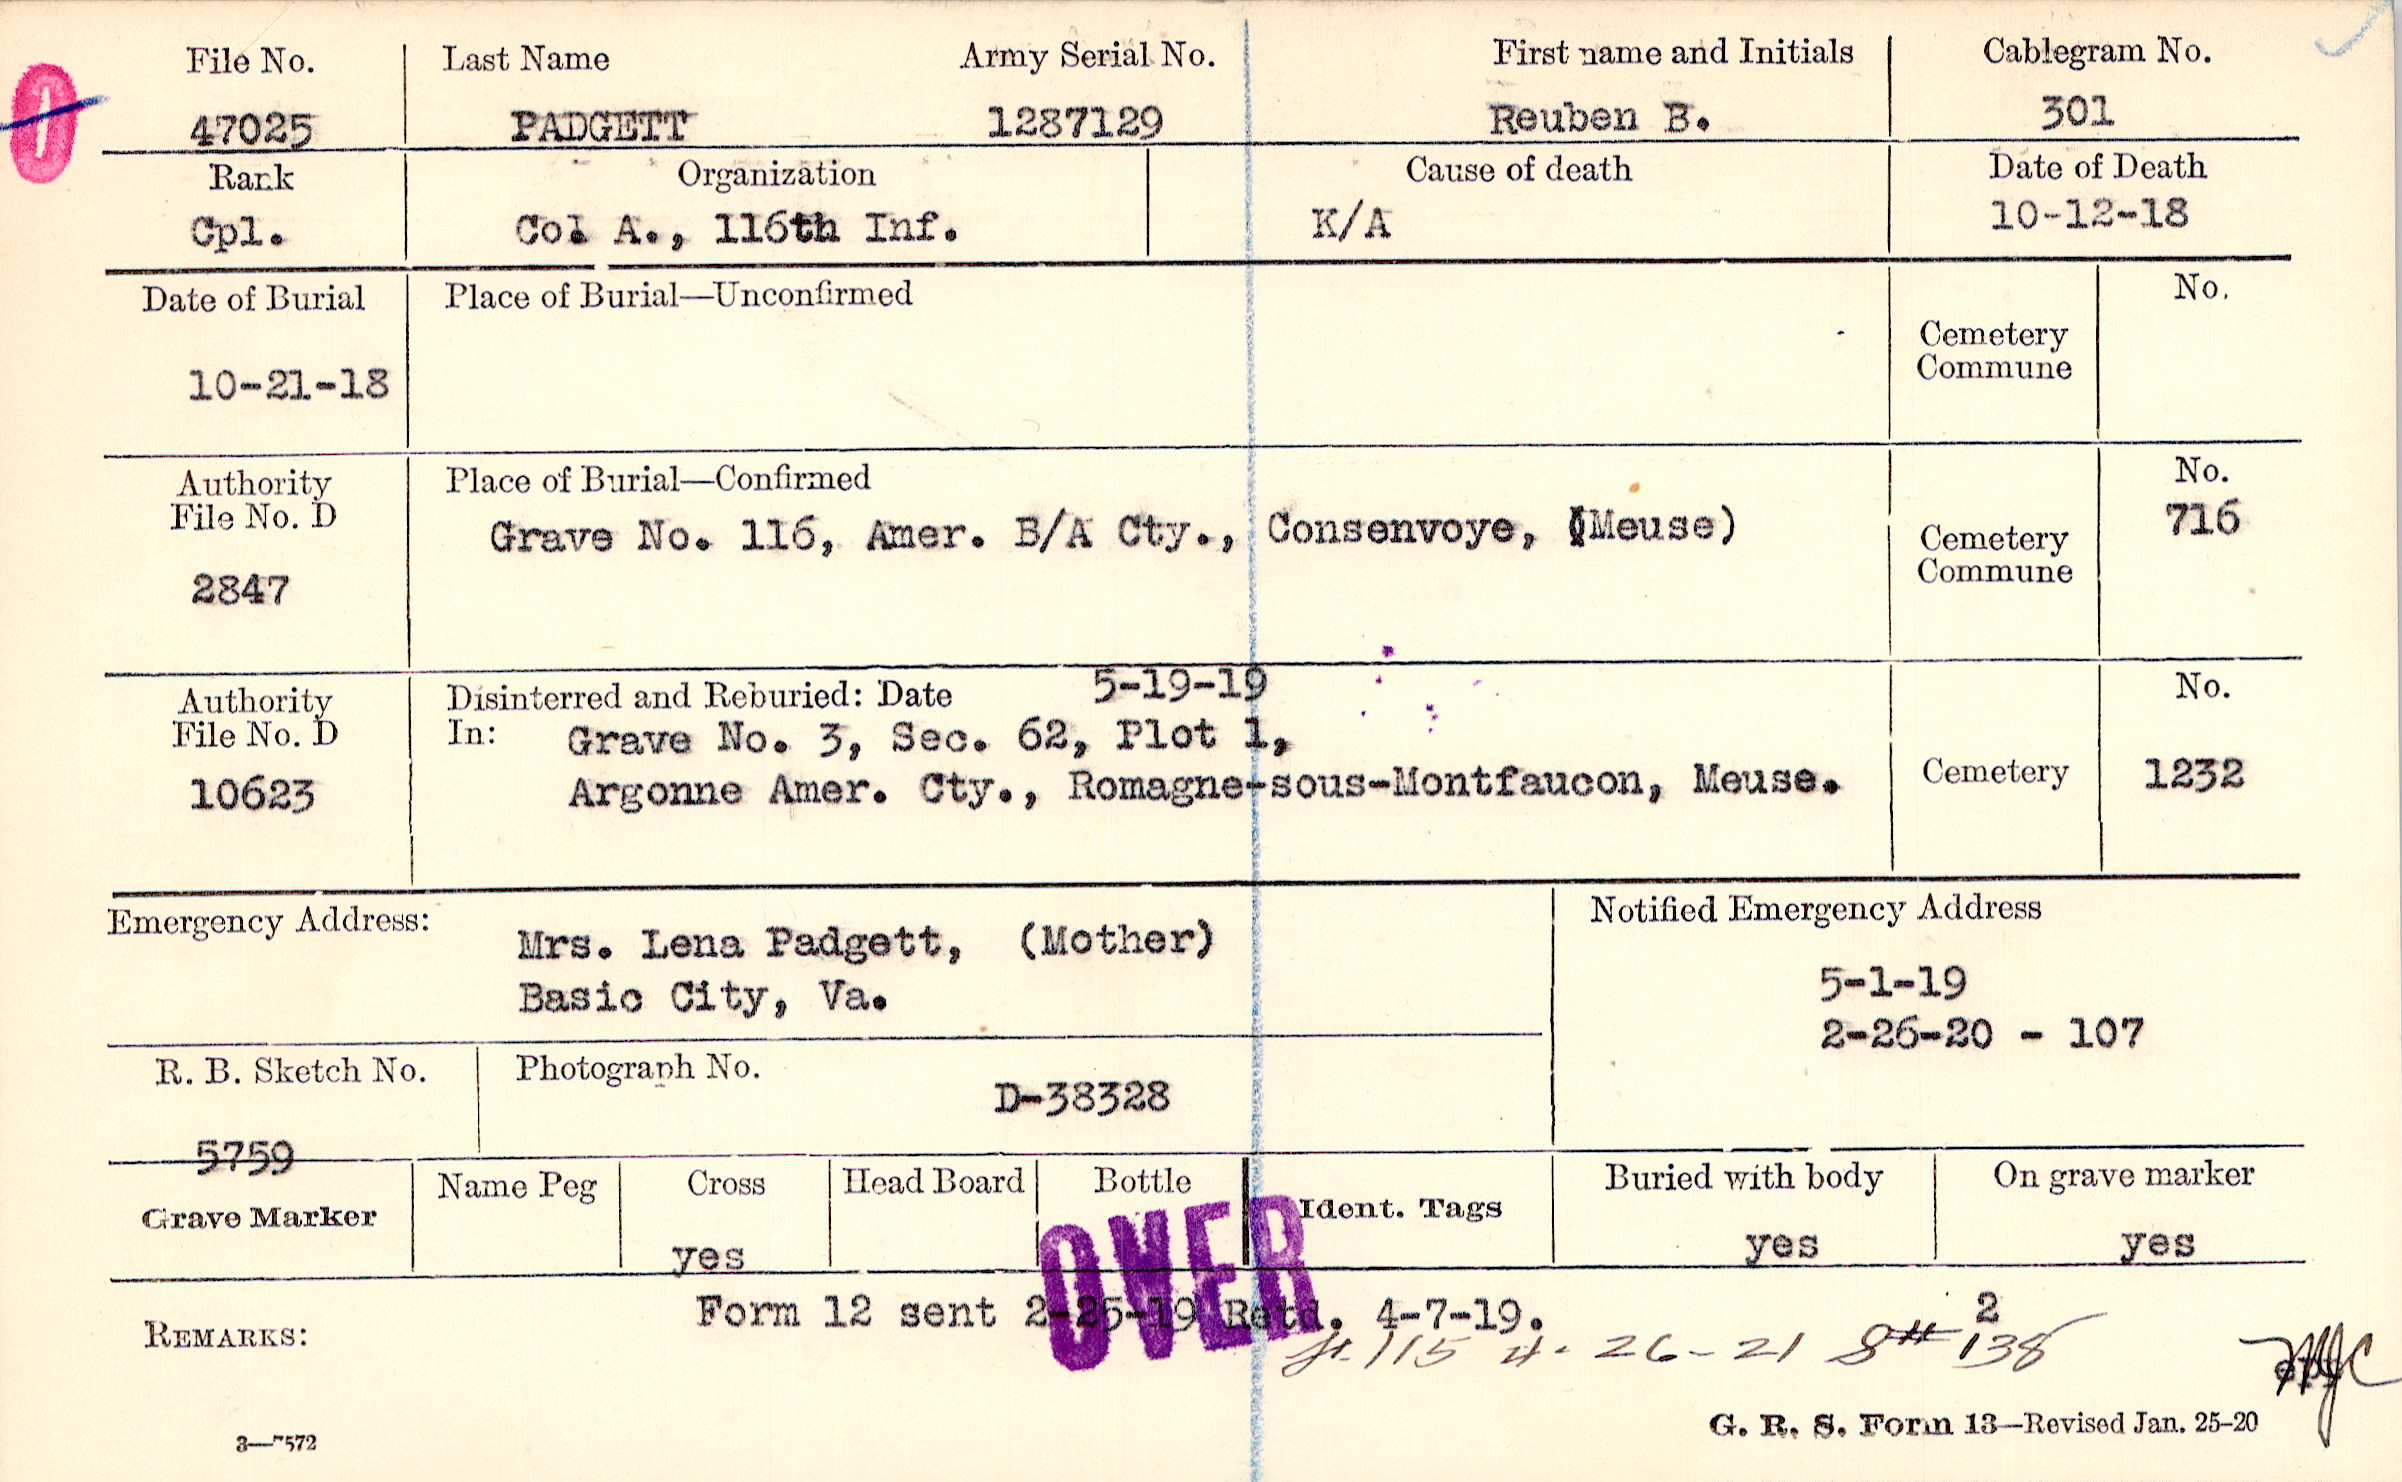 File No. Last Name Army Serial No. First name and Initials Cablegram No.
47025 PADGETT 1287129 Reuben B. 301
Rank Organization Cause of death Date of Death
Cpl. Co. A., 116th Inf. K/A 10-12-18
Date of Burial Place of Burial—Unconfirmed No.
Cemetery
Commune
10-21-18
Authority Place of Burial—Confirmed No.
File No. D Grave No. 116, Amer. B/A Cty., Consenvoye, (Meuse) 716
Cemetery
Commune
2847
Authority Disinterred and Reburied: Date 5-19-19 No.
File No. D In: Grave No. 3, Sec. 62, Plot 1,
10623 Argonne Amer. Cty., Romagne-sous-Montfaucon, Meuse. Cemetery 1232
Emergency Address: Notified Emergency Address
Mrs. Lena Padgett, (Mother)
Basic City, Va.
5-1-19
2-26-20 - 107
R. B. Sketch No. Photograph No.
5759 D-38328
Grave Marker Name Peg Cross Head Board Bottle Ident. Tags Buried with body On grave marker
yes yes yes
OVER
REMARKS: Form 12 sent 2-25-19 Retd. 4-7-19. 2
115 4-26-21 S# 138
MJC
3—7572 G. R. S. Form 13—Revised Jan. 25-20